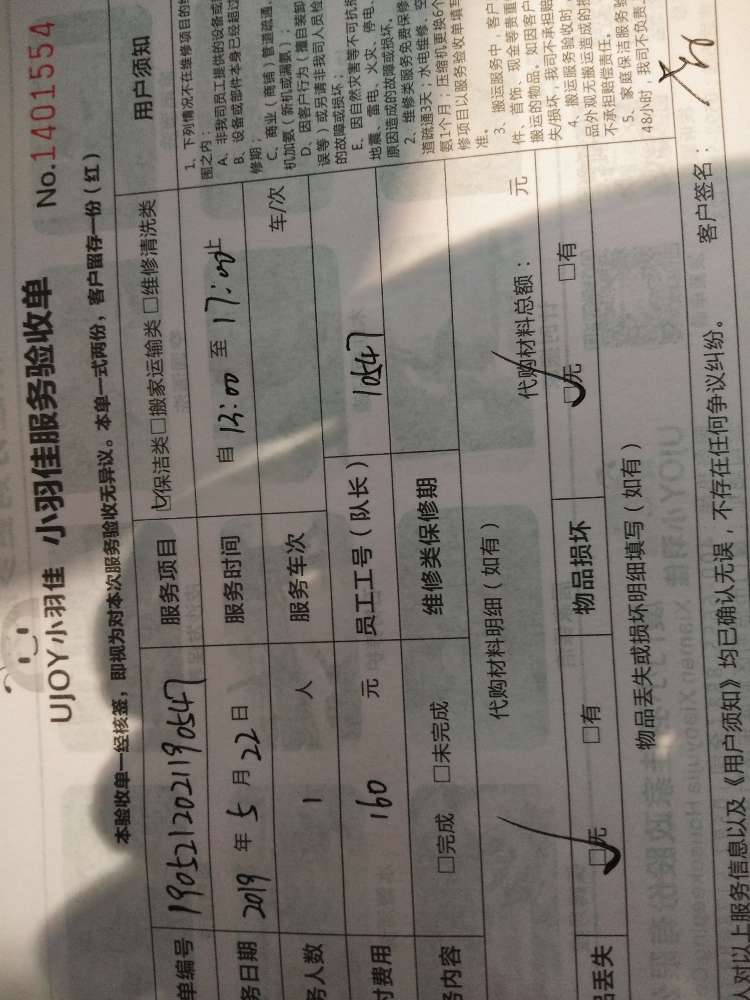 UJOY小羽佳 小羽佳服务验收单 No.1401554
本验收单一经核签，即视为对本次服务验收无异议。本单一式两份，客户留存一份（红）
单编号 1905212021190547 服务项目 ☑保洁类□搬家运输类 □维修清洗类 用户须知
务日期 2019 年 5 月 22 日 服务时间 自 13:00 至 17:00止
务人数 1 人 服务车次 车/次
付费用 160 元 员工工号（队长） 10547
务内容 □完成 □未完成 维修类保修期
代购材料明细（如有） 代购材料总额： 元
品丢失 ☑无 □有 物品损坏 ☑无 □有
物品丢失或损坏明细填写（如有）
人对以上服务信息以及《用户须知》均已确认无误，不存在任何争议纠纷。 客户签名：
1、下列情况不在维修项目的
围之内：
A、非我司员工提供的设备或
B、设备或部件本身已经超过
修期；
C、商业（商铺）管道疏通、
机加氨（新机或漏氨）；
D、因客户行为（擅自装卸
误等）或另请非我司人员检
的故障或损坏；
E、因自然灾害等不可抗
地震、雷电、火灾、停电、
原因造成的故障或损坏。
2、维修类服务免费保修
道疏通3天；水电维修、空
氨1个月，压缩机更换6个
修项目以服务验收单填写
准。
3、搬运服务中，客户
件、首饰、现金等贵重
搬运的物品。如因客户
失损坏，我司不承担赔
4、搬运服务验收时，
品外观无搬运造成的损
不承担赔偿责任。
5、家庭保洁服务验
48小时，我司不负责